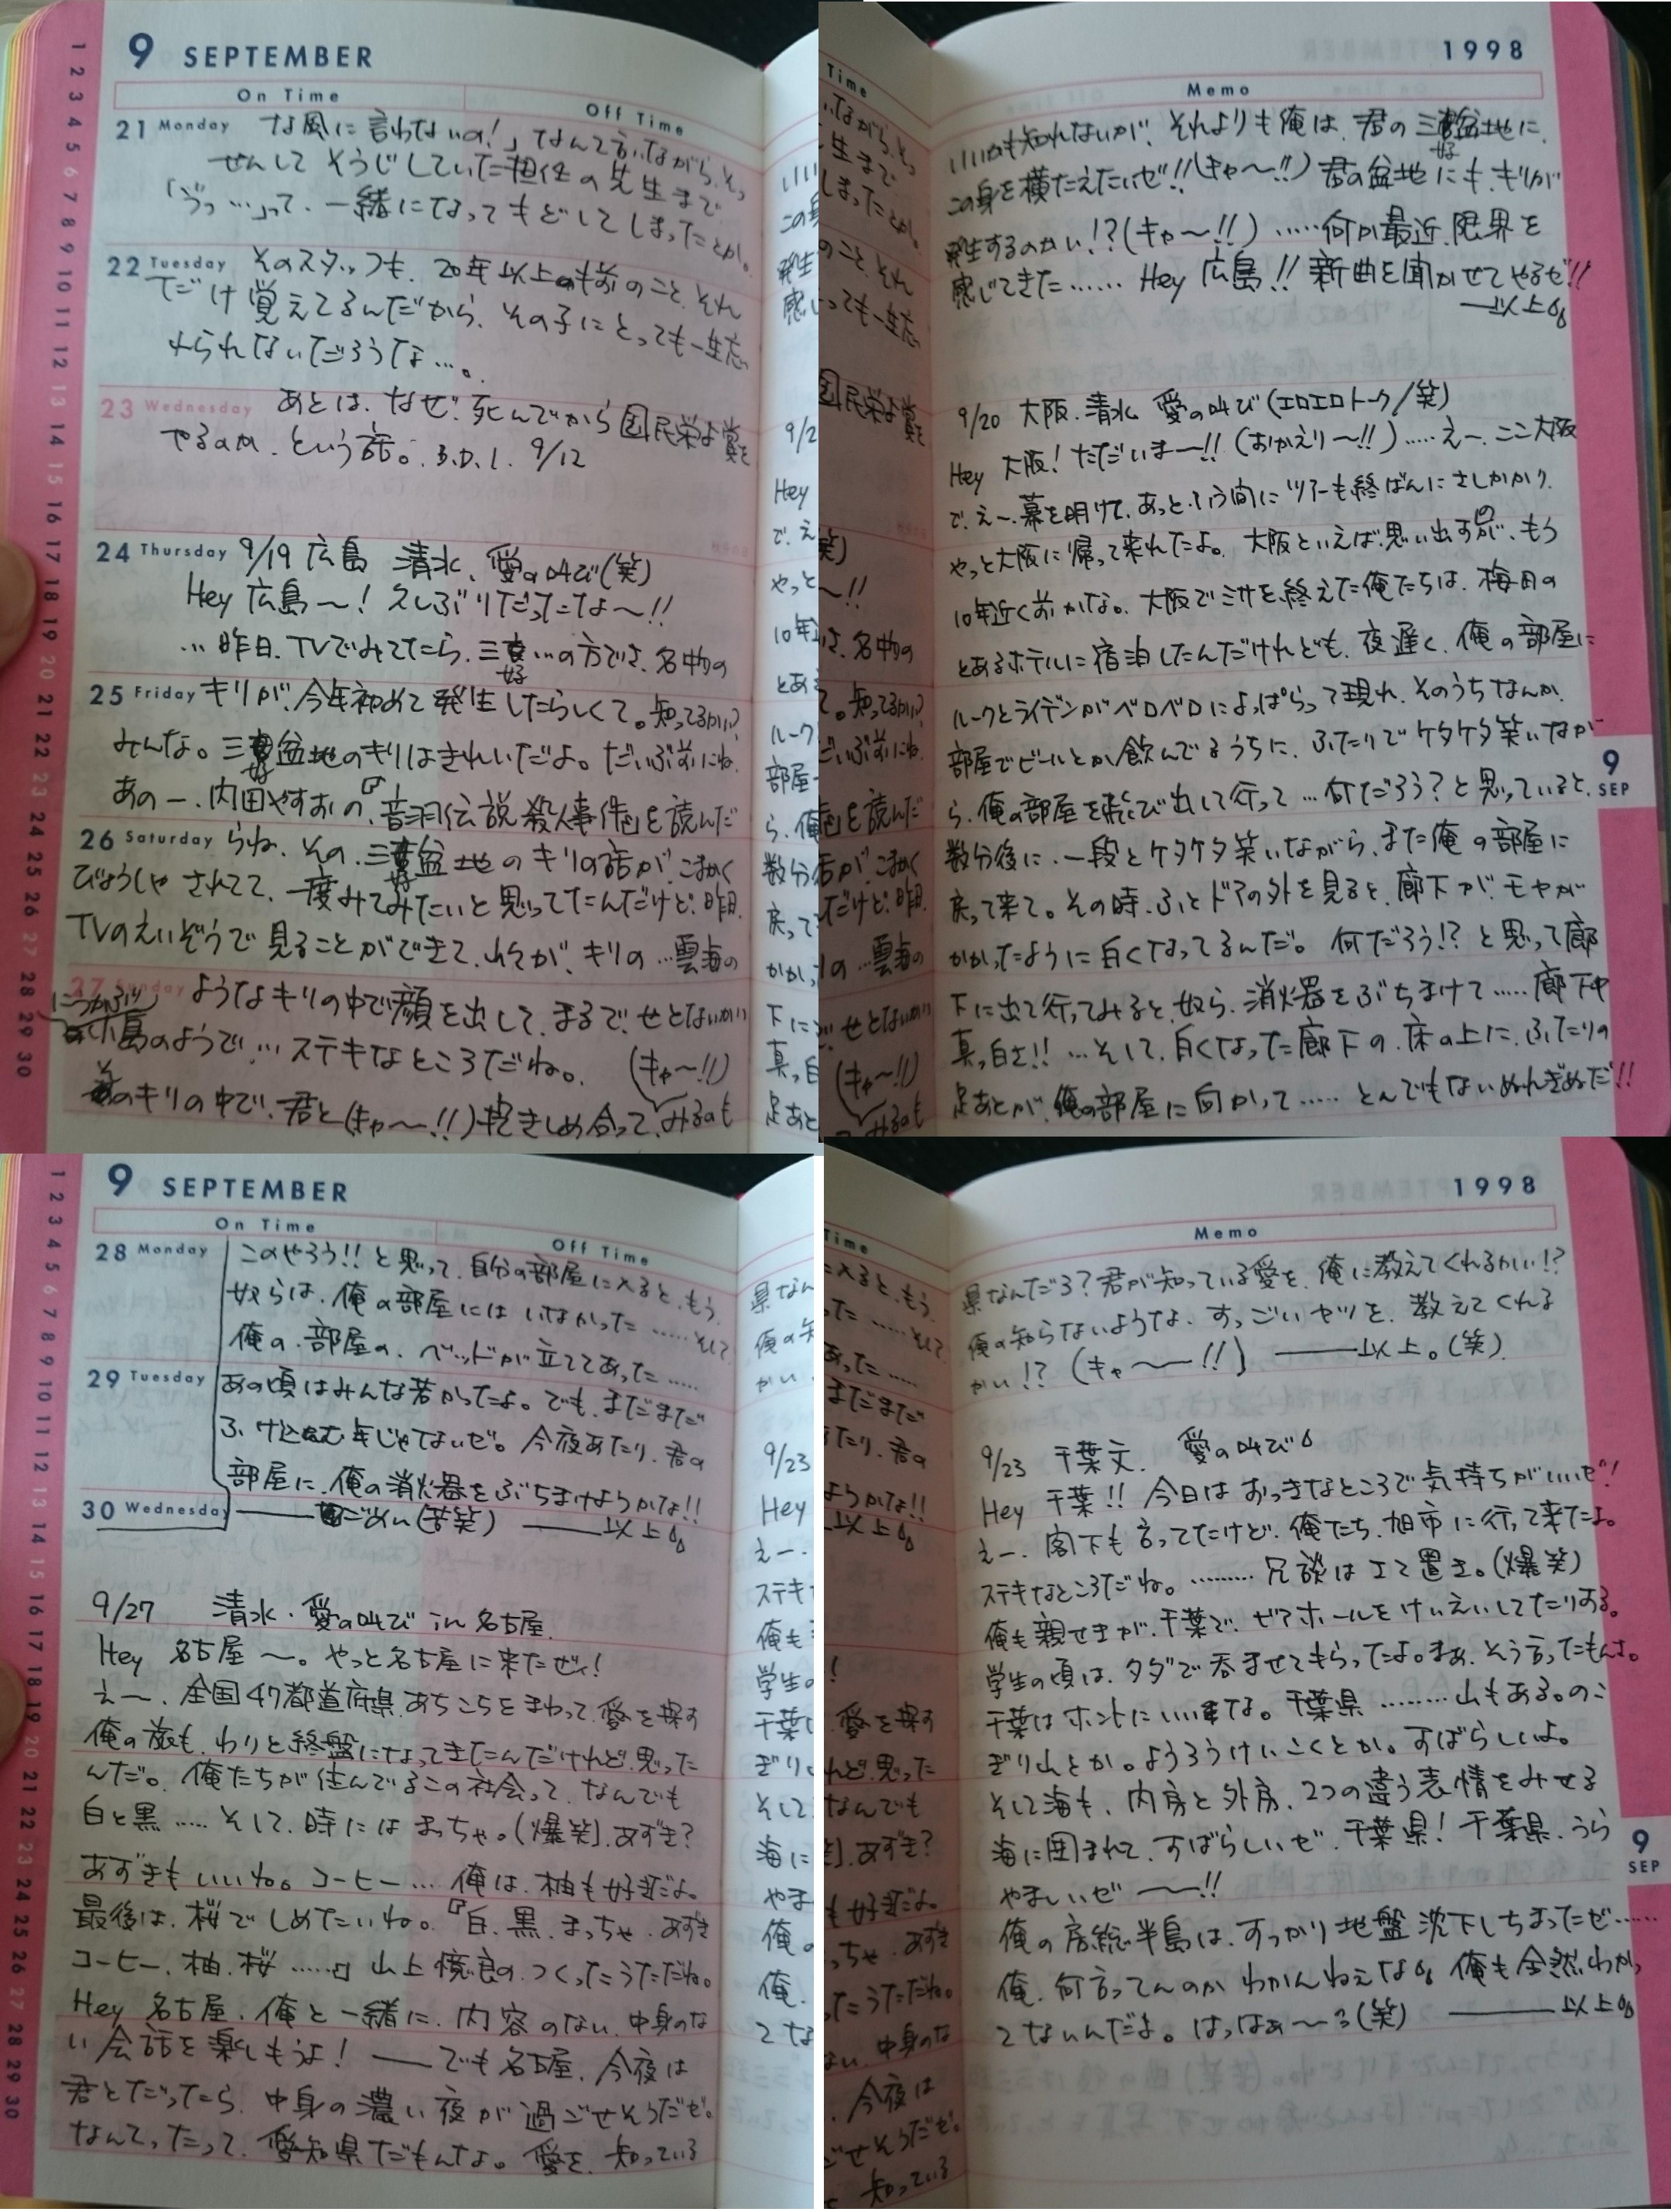 9 SEPTEMBER
On Time
Off Time
21 Monday な風に言わないの!」なんて言いながら、そっ
せんして そうじしていた担任の先生まで
「ゔっ…」って、一緒になってもどしてしまったとか。
22 Tuesday そのスタッフも、20年以上も前のこと、それ
だけ覚えてるんだから、その子にとっても一生忘
れられないだろうな…。
23 Wednesday あとは、なぜ、死んでから国民栄よ賞を
やるのか、という話。B.D.I. 9/12
24 Thursday 9/19 広島 清水、愛の叫び(笑)
Hey 広島〜! 久しぶりだったな〜!!
… 昨日、TVでみてたら、三好…の方でさ、名物の
25 Friday キリが、今年初めて発生したらしくて。知ってるかい?
みんな。三好盆地のキリはきれいだよ。だいぶ前にね、
あのー、内田やすおの『音羽伝説殺人事件』を読んだ
26 Saturday らね、その、三好盆地のキリの話が、こまかく
びょうしゃされてて、一度みてみたいと思ってたんだけど、昨日、
TVのえいぞうで見ることができて、山々が、キリの…雲海の
27 Sunday ようなキリの中で顔を出して、まるで、せとないかい
にうかぶ
小島のようで… ステキなところだね。 (キャ〜!!)
そのキリの中で、君と(キャ〜!!)抱きしめ合って、みるのも
1 2 3 4 5 6 7 8 9 10 11 12 13 14 15 16 17 18 19 20 21 22 23 24 25 26 27 28 29 30
1998
Memo
いいかも知れないが、それよりも俺は、君の三好盆地に、
この身を横たえたいぜ!!(キャ〜!!) 君の盆地にも、キリが
発生するのかい!?(キャ〜!!) ……何か最近、限界を
感じてきた…… Hey 広島!! 新曲を聞かせてやるぜ!!
―以上。
9/20 大阪、清水 愛の叫び(エロエロトーク/笑)
Hey 大阪! ただいまー!! (おかえり〜!!) ……えー、ここ大阪
で、えー、幕を明けて、あっという間にツアーも終ばんにさしかかり、
やっと大阪に帰って来れたよ。大阪といえば、思い出すのが、もう
10年近く前かな。大阪でミサを終えた俺たちは、梅田の
とあるホテルに宿泊したんだけれども、夜遅く、俺の部屋に
ルークとライデンがベロベロによっぱらって現れ、そのうちなんか、
部屋でビールとか飲んでるうちに、ふたりでケタケタ笑いなが
ら、俺の部屋を飛び出して行って…何だろう?と思っていると、
数分後に、一段とケタケタ笑いながら、また俺の部屋に
戻って来て。その時、ふとドアの外を見ると、廊下が、モヤが
かかったように白くなってるんだ。何だろう!?と思って廊
下に出て行ってみると、奴ら、消火器をぶちまけて……廊下中
真っ白さ!! …そして、白くなった廊下の、床の上に、ふたりの
足あとが、俺の部屋に向かって…… とんでもないぬれぎぬだ!!
9
SEP
9 SEPTEMBER
On Time
Off Time
28 Monday このやろう!! と思って、自分の部屋に入ると、もう、
奴らは、俺の部屋にはいなかった……そして、
俺の、部屋の、ベッドが立ててあった……
29 Tuesday あの頃はみんな若かったよ。でも、まだまだ
ふけ込む年じゃないぜ。今夜あたり、君の
部屋に、俺の消火器をぶちまけようかな!!
30 Wednesday ―――ごめん(苦笑) ―――以上。
9/27 清水・愛の叫び in 名古屋
Hey 名古屋〜。やっと名古屋に来たぜィ!
えー、全国47都道府県、あちこちをまわって、愛を探す
俺の旅も、わりと終盤になってきたんだけれど、思った
んだ。俺たちが住んでるこの社会って、なんでも
白と黒……そして、時には まっちゃ。(爆笑)、あずき?
あずきもいいね。コーヒー…. 俺は、柚も好きだよ。
最後は、桜でしめたいね。『白、黒、まっちゃ、あずき
コーヒー、柚、桜……』山上憶良の、つくったうただね。
Hey 名古屋、俺と一緒に、内容のない、中身のな
い会話を楽しもうよ! ――でも名古屋、今夜は
君とだったら、中身の濃い夜が過ごせそうだぜ。
なんてったって、愛知県だもんな。愛を、知っている
1 2 3 4 5 6 7 8 9 10 11 12 13 14 15 16 17 18 19 20 21 22 23 24 25 26 27 28 29 30
1998
Memo
県なんだろ?君が知っている愛を、俺に教えてくれるかい!?
俺の知らないような、すっごいヤツを、教えてくれる
かい!? (キャ〜〜!!) ―――以上。(笑)
9/23 千葉文、愛の叫び。
Hey 千葉!! 今日はおっきなところで気持ちがいいぜ!
えー、閣下も言ってたけど、俺たち、旭市に行って来たよ。
ステキなところだね。………冗談はさて置き。(爆笑)
俺も親せきが、千葉で、ビアホールをけいえいしてたりする。
学生の頃は、タダで呑ませてもらってたよ。まあ、そう言ったもんさ。
千葉はホントにいいよな。千葉県………山もある。のこ
ぎり山とか。ようろうけいこくとか。すばらしいよ。
そして海も、内房と外房、2つの違う表情をみせる
海に囲まれて、すばらしいぜ、千葉県! 千葉県、うら
やましいぜ〜〜!!
俺の房総半島は、すっかり地盤沈下しちまったぜ……
俺、何言ってんのか わかんねぇな。俺も全然わかっ
てないんだよ。はっはぁ〜〜ろ(笑) ―――以上。
9
SEP